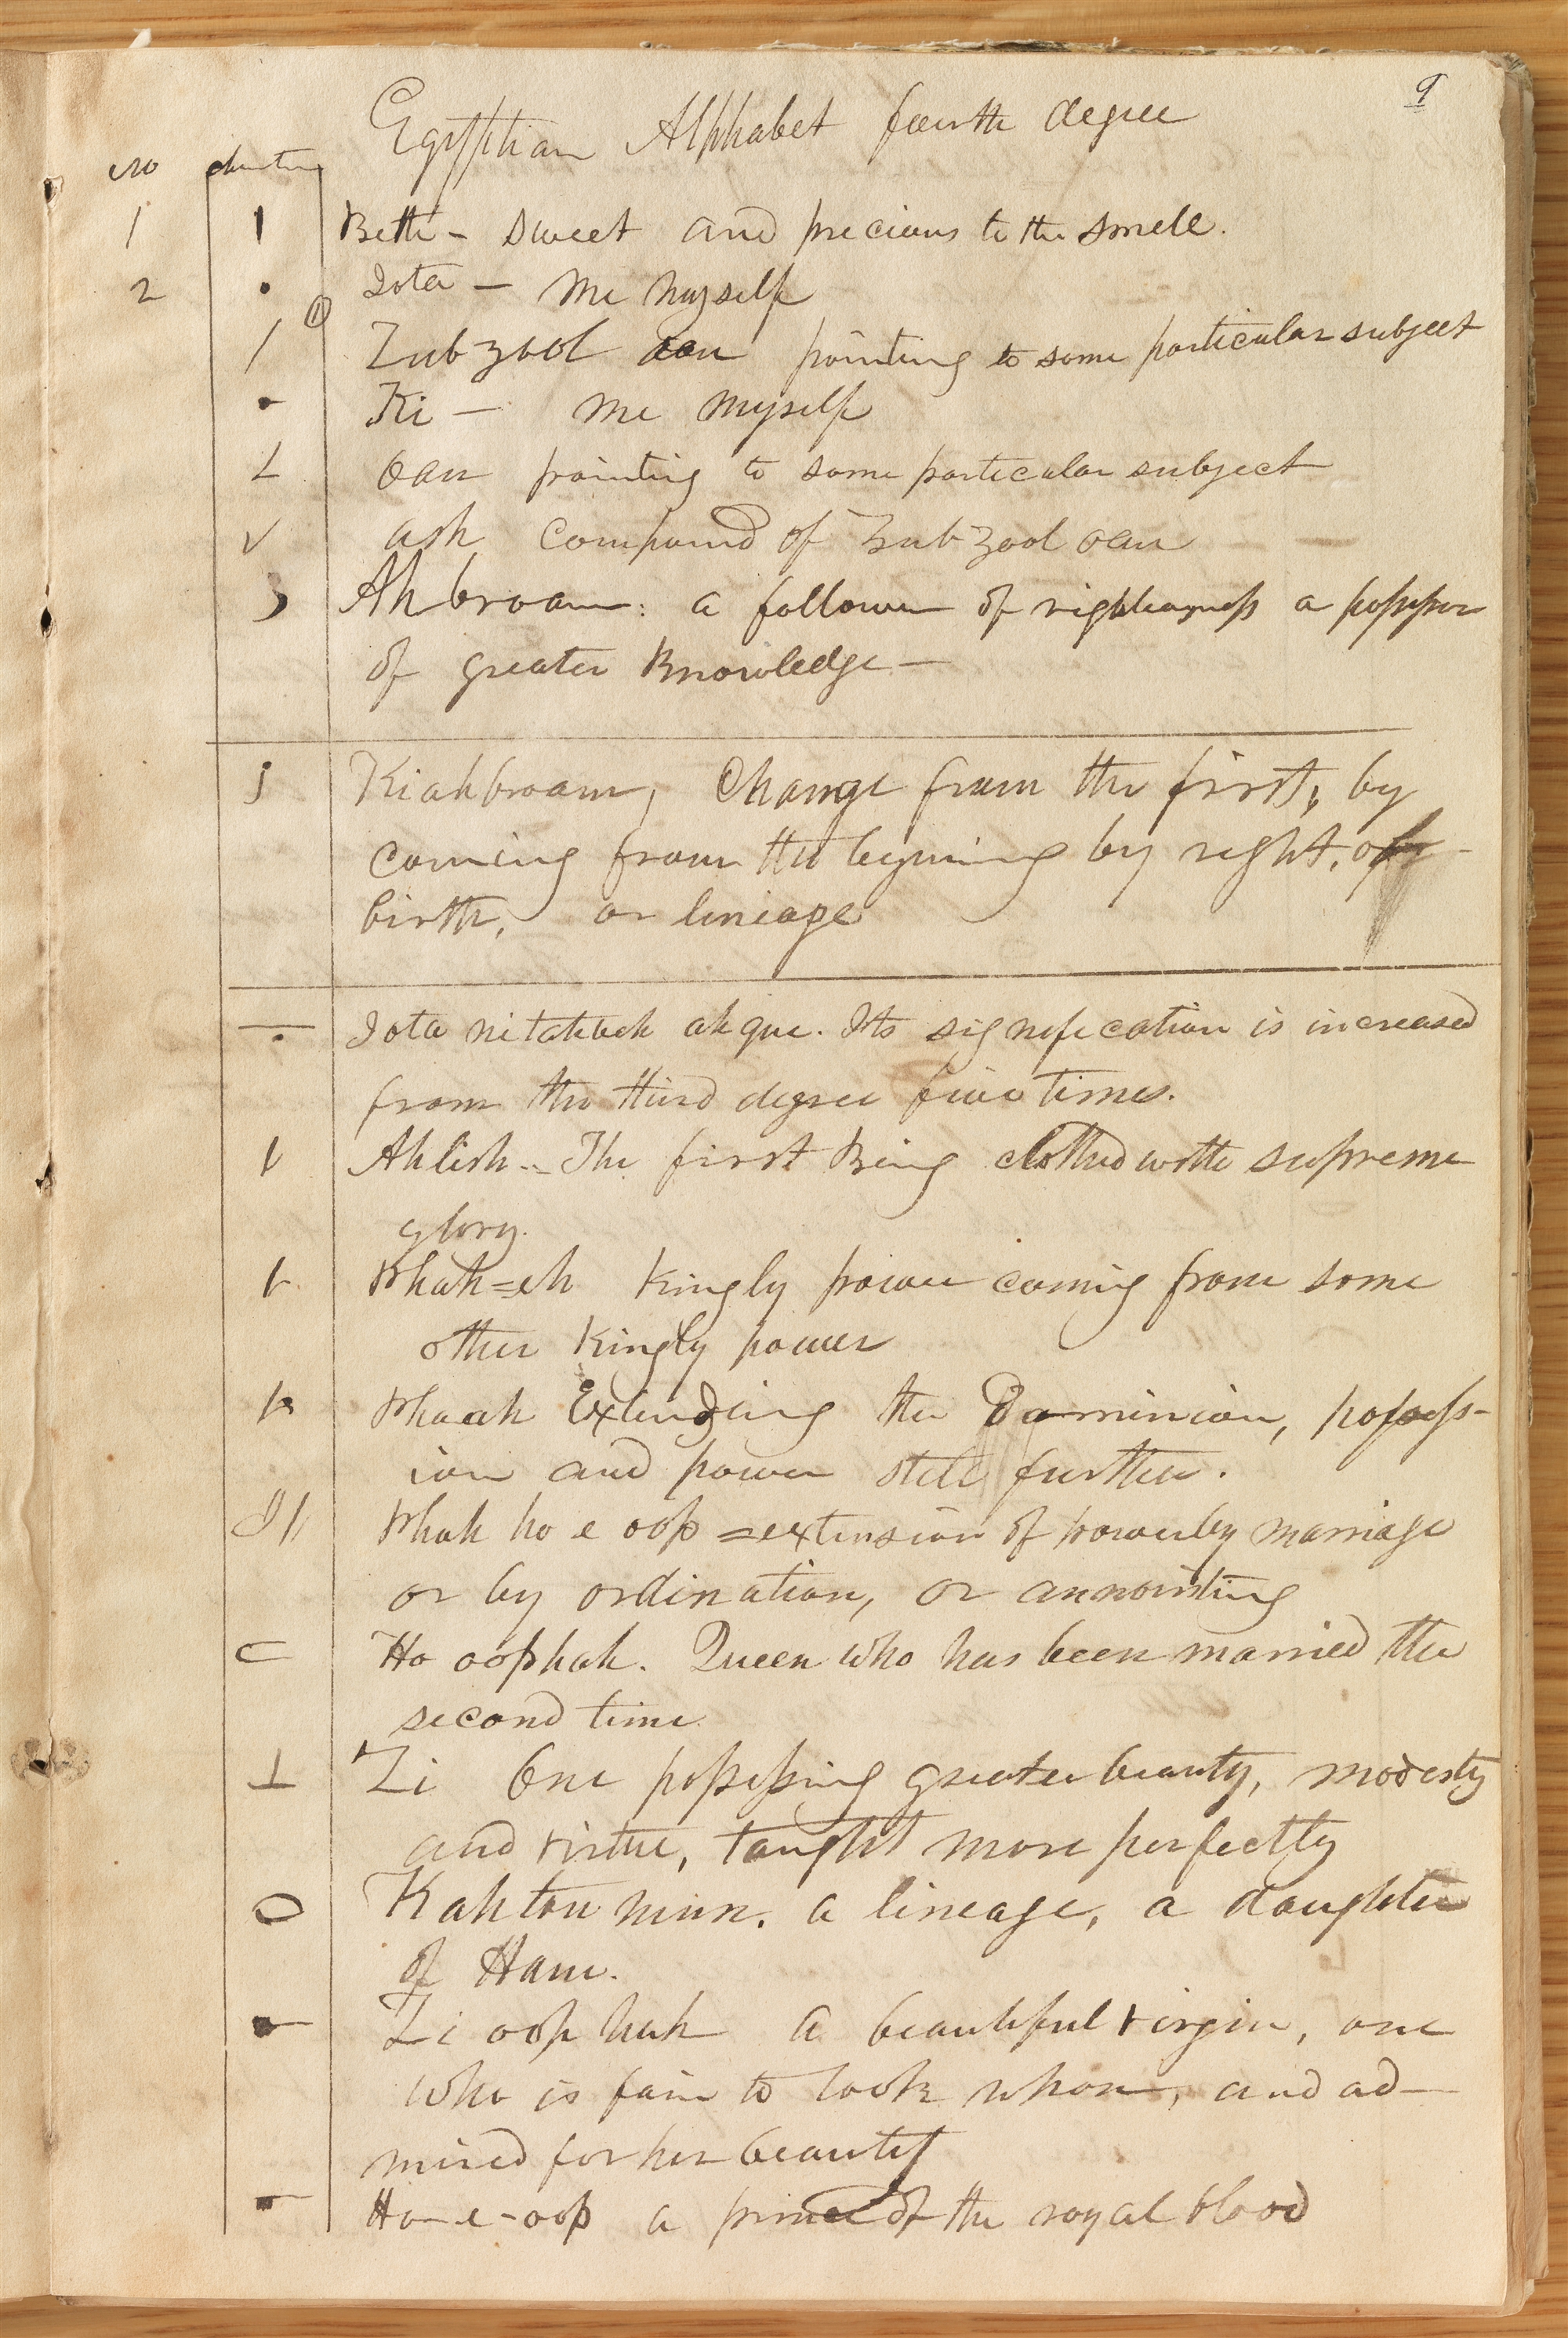 9
Egyptian Alphabet fourth degree
No
1 Beth - sweet and precious to the smell.
2 Iota — me myself
Zub zool oan pointing to some particular subject
Ki — me myself
oan pointing to some particular subject
ash compound of Zub Zool oan
Ahbroam: a follower of righteousness a possessor
of greater knowledge —
Kiahbroam, Change from the first, by
coming from the begining by right, of
birth, or lineage
Iota nitahveh ah que. Its signification is increased
from the third degree five times.
Ahlish.. The first Being clothed with supreme
glory.
Phah=eh Kingly power coming from some
other kingly power
Phaah Extending the Dominion, possess-
ion and power still further.
Phah ho e oop =extension of power by marriage
or by ordination, or annointing
Ho oop hah. Queen who has been married the
second time
Zi One possessing greater beauty, modesty
and virtue, taught more perfectly
Kah tou mun. a lineage, a daughter
of Ham.
Zi oop hah a beautiful virgin, one
who is fair to look uhon, and ad-
mired for her beauty
Ho-e-oop a prince of the royal blood